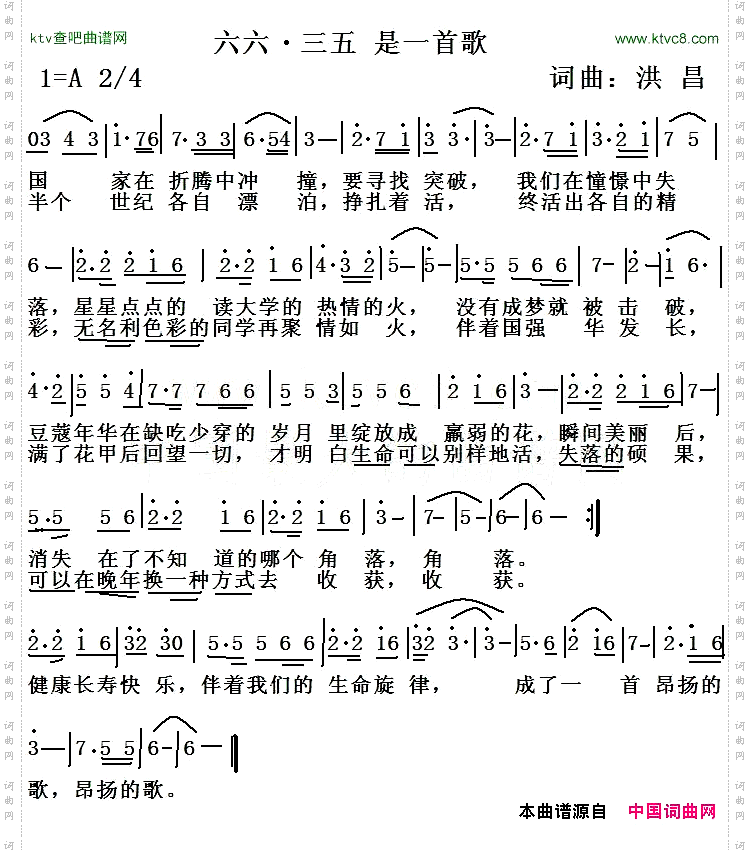 ktv查吧曲谱网
六六·三五 是一首歌
www.ktvc8.com
1=A 2/4
词曲：洪 昌
03 4 3 | 1·76 | 7·3 3 | 6·54 | 3— | 2·7 1 | 3 3· | 3— | 2·7 1 | 3·2 1 | 7 5 |
国 家在 折腾中冲 撞，要寻找 突破， 我们在憧憬中失
半个 世纪 各自 漂 泊，挣扎着 活， 终活出各自的精
6— | 2·2 2 1 6 | 2·2 1 6 | 4·3 2 | 5— | 5— | 5·5 5 6 5 6 | 7— | 2— | 1 6· |
落，星星点点的 读大学的 热情的火， 没有成梦就 被 击 破，
彩，无名利色彩的同学再聚 情如 火， 伴着国强 华 发 长，
4·2 | 5 5 4 | 7·7 7 6 6 | 5 5 3 | 5 5 6 | 2 1 6 | 3— | 2·2 2 1 6 | 7— |
豆蔻年华在缺吃少穿的 岁月 里绽放成 羸弱的花，瞬间美丽 后，
满了花甲后回望一切， 才明 白生命可以别样地活，失落的硕 果，
5·5 5 6 | 2·2 1 6 | 2·2 1 6 | 3— | 7— | 5— | 6— | 6— :||
消失 在了不知 道的哪个 角 落，角 落。
可以在晚年换一种方式去 收 获，收 获。
2·2 1 6 | 32 30 | 5·5 5 6 6 | 2·2 16 | 32 3· | 3— | 5·6 | 2 16 | 7— | 2·1 6
健康长寿快 乐，伴着我们的 生命旋 律， 成了一 首 昂扬的
3— | 7·5 5 | 6— | 6— ||
歌，昂扬的歌。
本曲谱源自 中国词曲网